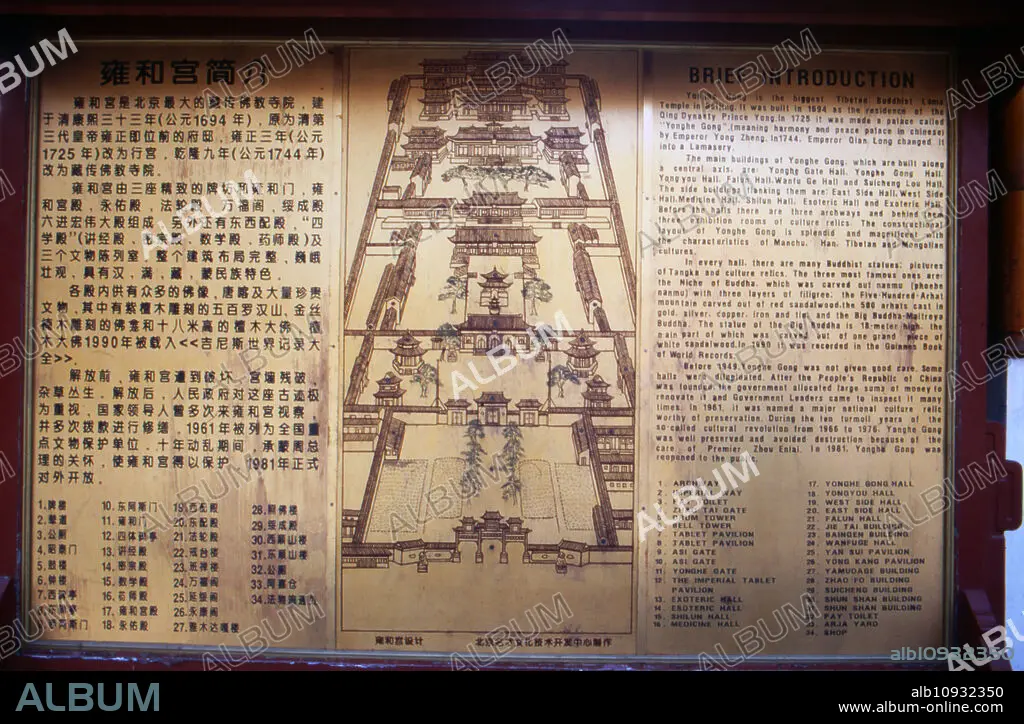 雍和宫简介
雍和宫是北京最大的藏传佛教寺院，建
于清康熙三十三年(公元1694年)，原为清第
三代皇帝雍正即位前的府邸，雍正三年(公元
1725年)改为行宫，乾隆九年(公元1744年)
改为藏传佛教寺院。
雍和宫由三座精致的牌坊和雍和门，雍
和宫殿，永佑殿，法轮殿，万福阁，绥成殿
六进宏伟大殿组成，另有东西配殿，"四
学殿"(讲经殿，密宗殿，数学殿，药师殿)及
三个文物陈列室，整个建筑布局完整，巍峨
壮观，具有汉，满，藏，蒙民族特色。
各殿内供有众多的佛像，唐喀及大量珍贵
文物，其中有紫檀木雕刻的五百罗汉山，金丝
楠木雕刻的佛龛和十八米高的檀木大佛，檀
木大佛1990年被载入<<吉尼斯世界记录大
全>>。
解放前，雍和宫遭到破坏，宫墙残破，
杂草丛生。解放后，人民政府对这座古迹极
为重视，国家领导人曾多次来雍和宫视察，
并多次拨款进行修缮，1961年被列为全国重
点文物保护单位，十年动乱期间，承蒙周总
理的关怀，使雍和宫得以保护，1981年正式
对外开放。
1.牌楼
2.辇道
3.公厕
4.昭泰门
5.鼓楼
6.钟楼
10.东阿斯门
11.雍和门
12.四体碑亭
13.讲经殿
14.密宗殿
15.数学殿
16.药师殿
17.雍和宫殿
18.永佑殿
19.西配殿
20.东配殿
21.法轮殿
22.戒台楼
23.班禅楼
24.万福阁
25.延绥阁
26.永康阁
27.雅木达嘎楼
28.照佛楼
29.绥成殿
30.西顺山楼
31.东顺山楼
32.公厕
33.阿嘉仓
雍和宫设计
BRIEF INTRODUCTION
Yonghe Gong is the biggest Tibetan Buddhist Lama
Temple in Beijing. It was built in 1694 as the residence of the
Qing Dynasty Prince Yong. In 1725 it was made a palace called
"Yonghe Gong" (meaning harmony and peace palace in chinese)
by Emperor Yong Zheng. In 1744, Emperor Qian Long changed it
into a Lamasery.
The main buildings of Yonghe Gong, which are built along
a central axis, are: Yonghe Gate Hall, Yonghe Gong Hall,
Yongyou Hall, Falun Hall, Wanfu Ge Hall and Suicheng Lou Hall.
The side buildings flanking them are: East Side Hall, West Side
Hall, Medicine Hall, Shilun Hall, Exoteric Hall and Esoteric Hall.
Before the halls there are three archways and behind
exhibition rooms of culture relics. The constructional
layout of Yonghe Gong is splendid and magnificent with
characteristics of Manchu, Han, Tibetan and Mongolian
cultures.
In every hall, there are many Buddhist statues, pictures
of Tangka and culture relics. The three most famous ones are:
the Niche of Buddha, which was carved out nanmu (phoebe
nanmu) with three layers of filigree, the Five-Hundred-Arhat
mountain carved out of red sandalwood, the 500 arhats cast in
gold, silver, copper, iron and tin and the Big Buddha-Maitreya
Buddha. The statue of the Buddha is 18-meter high, the
main part of which was carved out of one grand piece of
white sandalwood. In 1990 it was recorded in the Guinnes Book
of World Records.
Before 1949, Yonghe Gong was not given good care. Some
halls were dilapidated. After the People's Republic of China
was founded, the government allocated large sums of money to
renovate it and Government Leaders came to inspect it many
times. In 1961, it was named a major national culture relic
worthy of preservation. During the ten turmoil years of the
so-called cultural revolution from 1966 to 1976, Yonghe Gong
was well preserved and avoided destruction because of the
care of Premier Zhou Enlai. In 1981, Yonghe Gong was
reopened to the public.
1 ARCHWAY
2 IMPERIAL WAY
3 PAY TOILET
4 ZHAO TAI GATE
5 DRUM TOWER
6 BELL TOWER
7 TABLET PAVILION
8 TABLET PAVILION
9 ASI GATE
10. ASI GATE
11. YONGHE GATE
12. THE IMPERIAL TABLET
PAVILION
13. EXOTERIC HALL
14. ESOTERIC HALL
15. SHILUN HALL
16. MEDICINE HALL
17. YONGHE GONG HALL
18. YONGYOU HALL
19. WEST SIDE HALL
20. EAST SIDE HALL
21. FALUN HALL
22. JIE TAI BUILDING
23. BAINGEN BUILDING
24. WANFUGE HALL
25. YAN SUI PAVILION
26. YONG KANG PAVILION
27. YAMUDAGE BUILDING
28. ZHAO FO BUILDING
29. SUICHENG BUILDING
30. SHUN SHAN BUILDING
31. SHUN SHAN BUILDING
32. PAY TOILET
33. ARJA YARD
34. SHOP
alb10932350
ALBUM
alb10932350
www.album-online.com